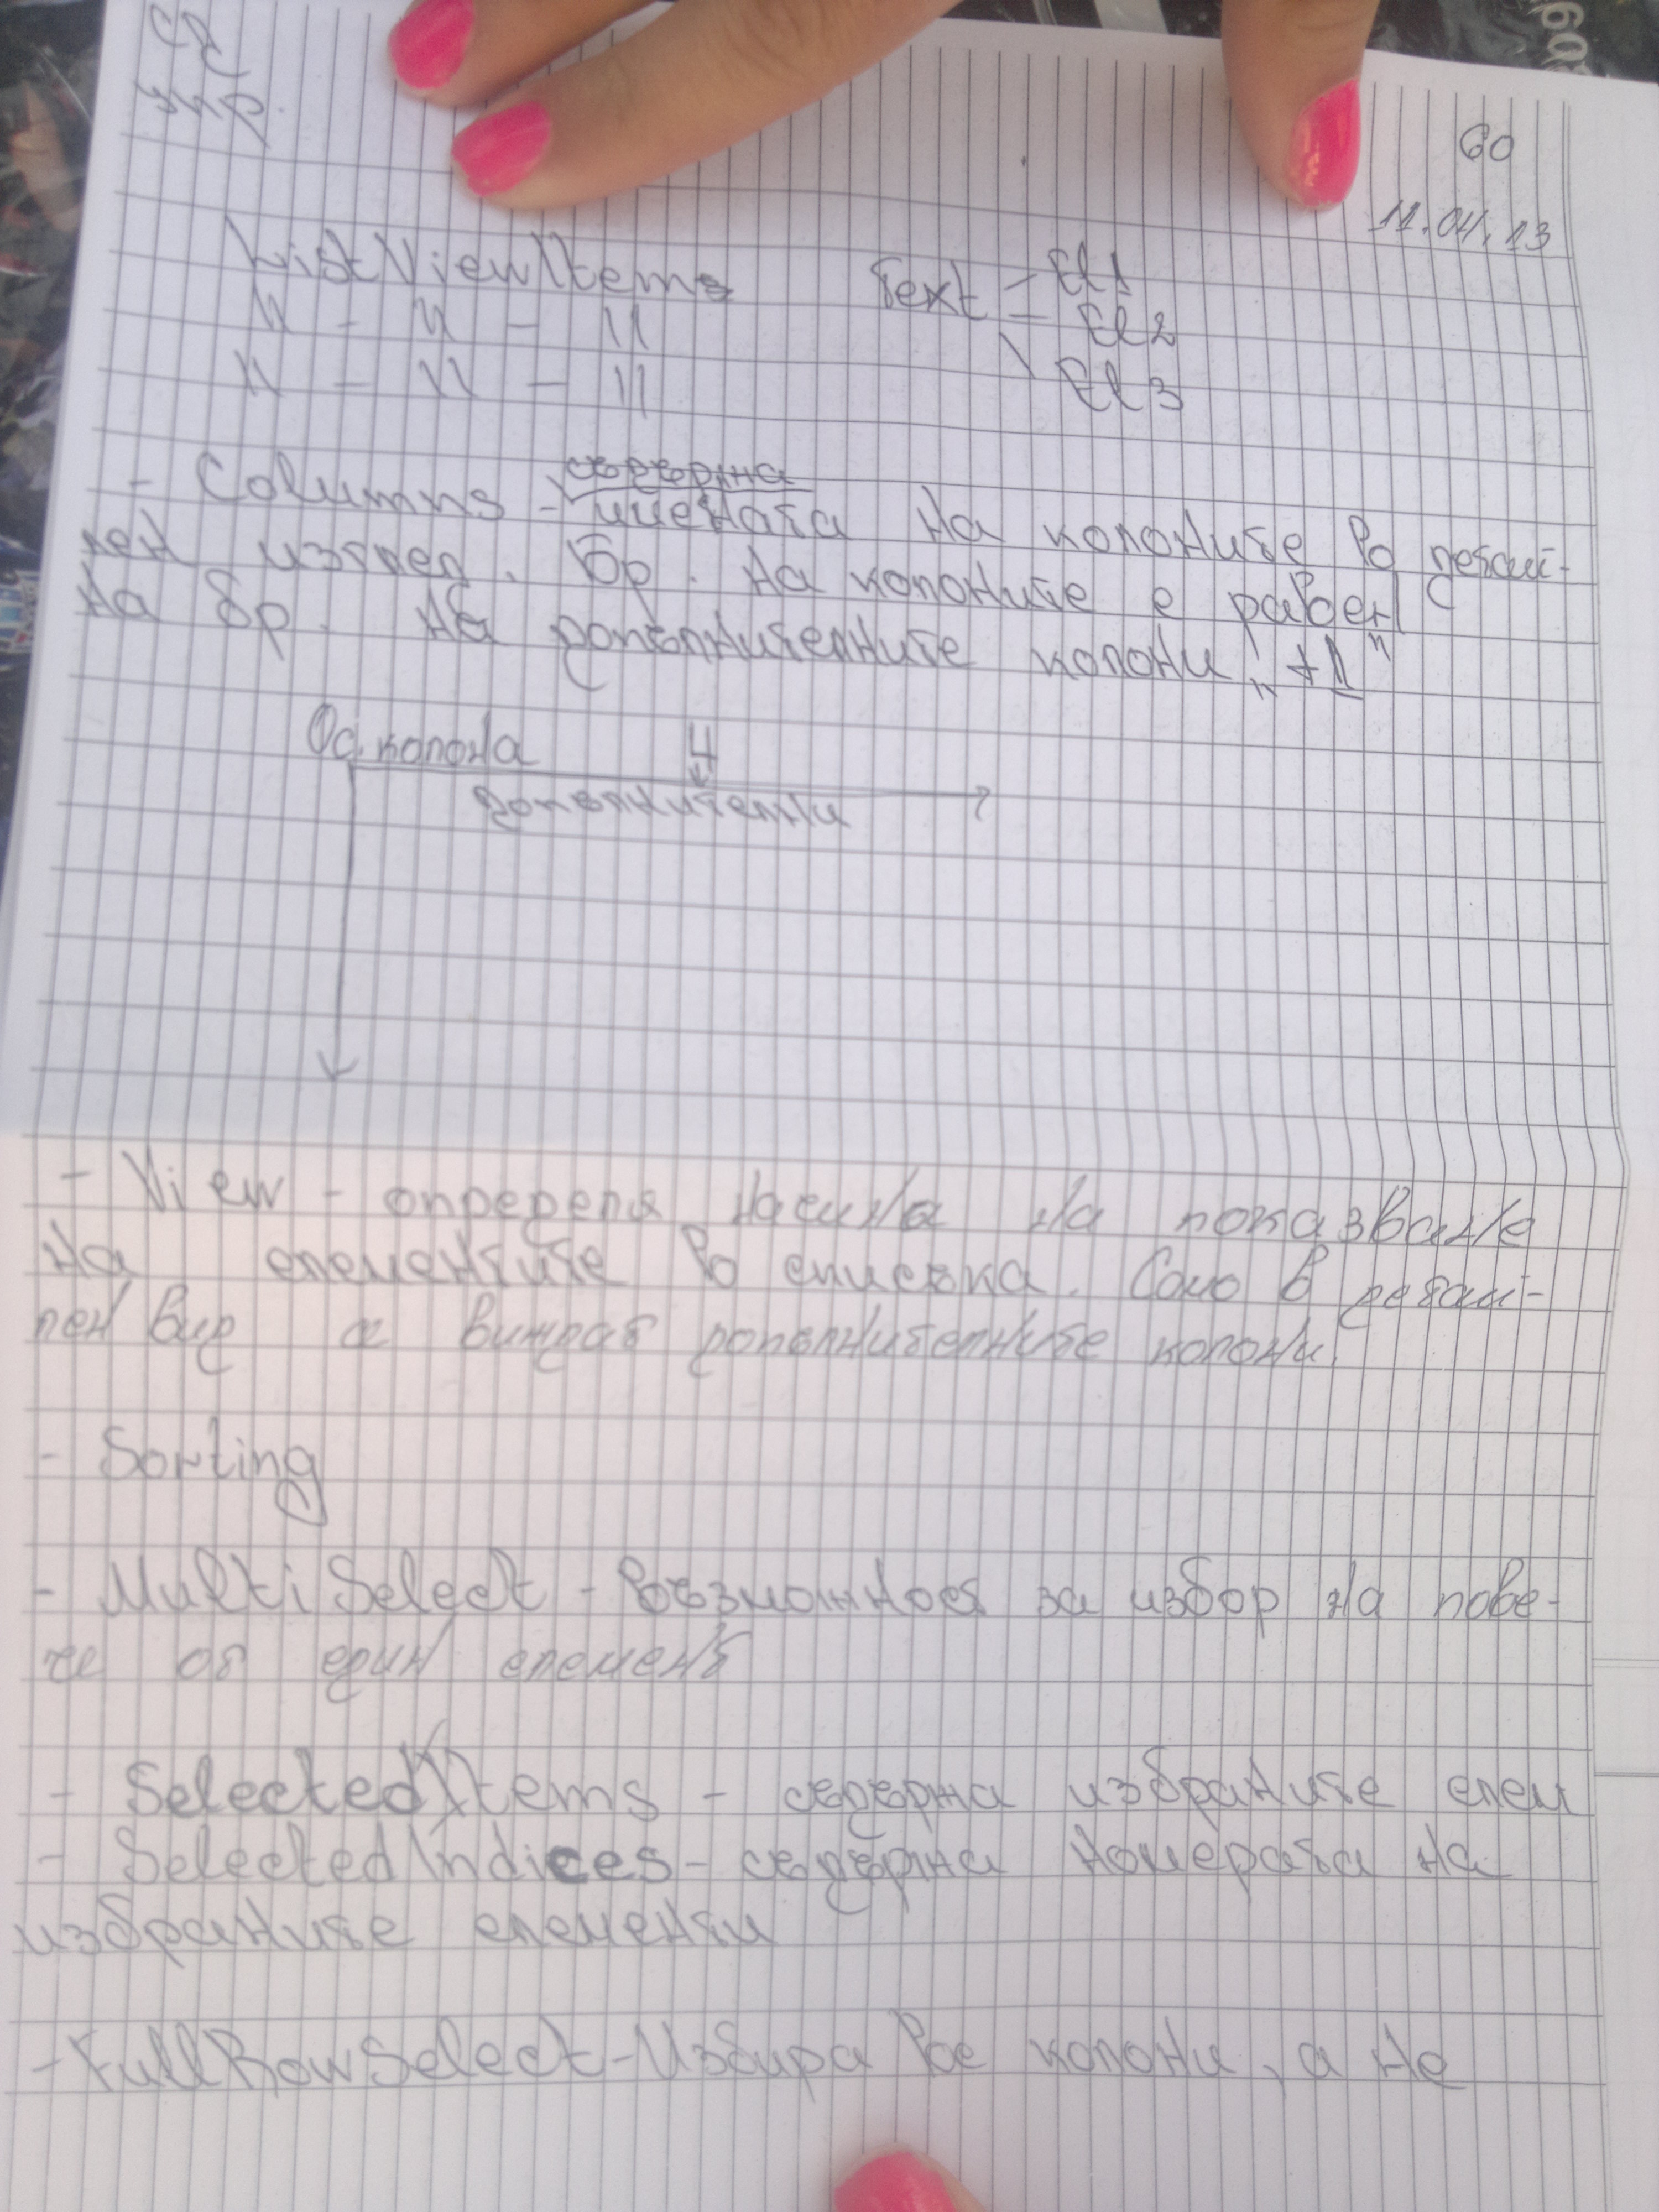 СП
упр.
60
11.04.13
ListViewItems Text - El1
" - " - " - El2
" - " - " \ El3
- Columns - съдържа
имената на колоните в детай-
лен изглед. Бр. на колоните е равен
на бр. на допълнителните колони „+1"
Ос. колона 4
допълнителни
- View - определя начина на показване
на елементите в списъка. Само в детай-
лен вид се виждат допълнителните колони.
- Sorting
- MultiSelect - възможност за избор на пове-
че от един елемент
- SelectedItems - съдържа избраните елем
- SelectedIndices - съдържа номерата на
избраните елементи
- FullRowSelect - Избира все колони, а не